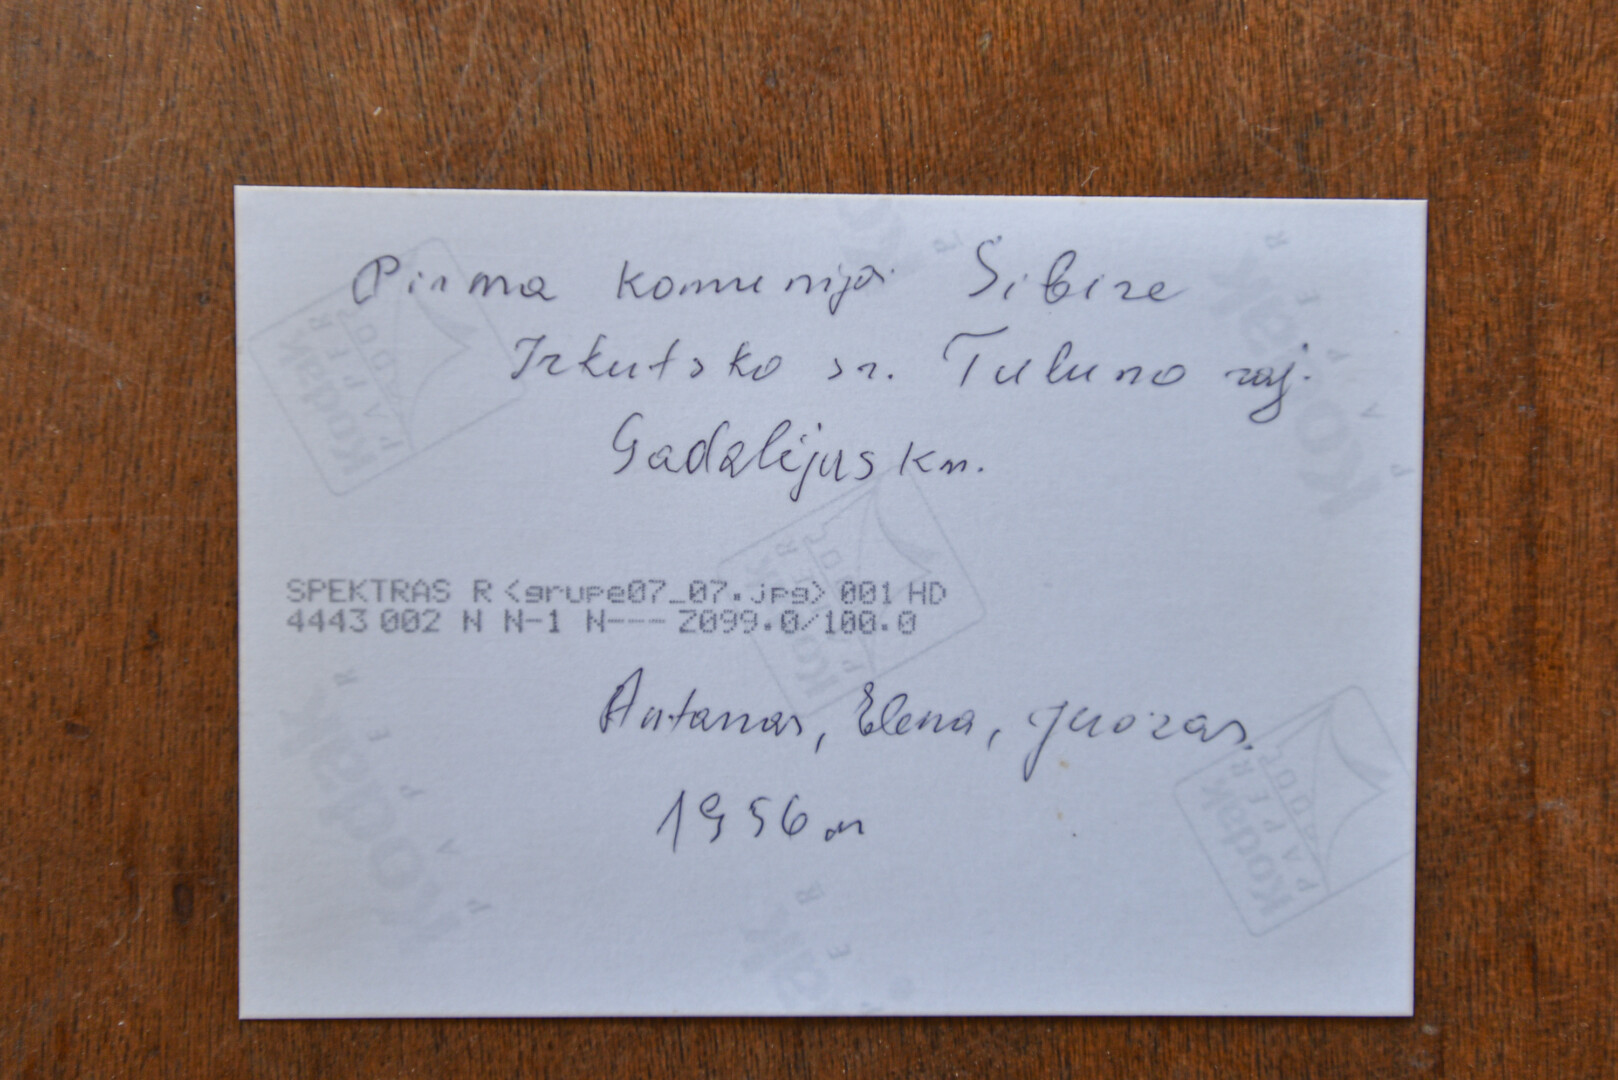 Pirma komunija Sibire
Irkutsko sr. Tuluno raj.
Gadalijus km.
SPEKTRAS R <grupe07_07.jpg> 001 HD
4443 002 N N-1 N--- Z099.0/100.0
Antanas, Elena, Juozas.
1956 m
Kodak
PAPER
Kodak
PAPER
Kodak
PAPER
Kodak
PAPER
Kodak
PAPER